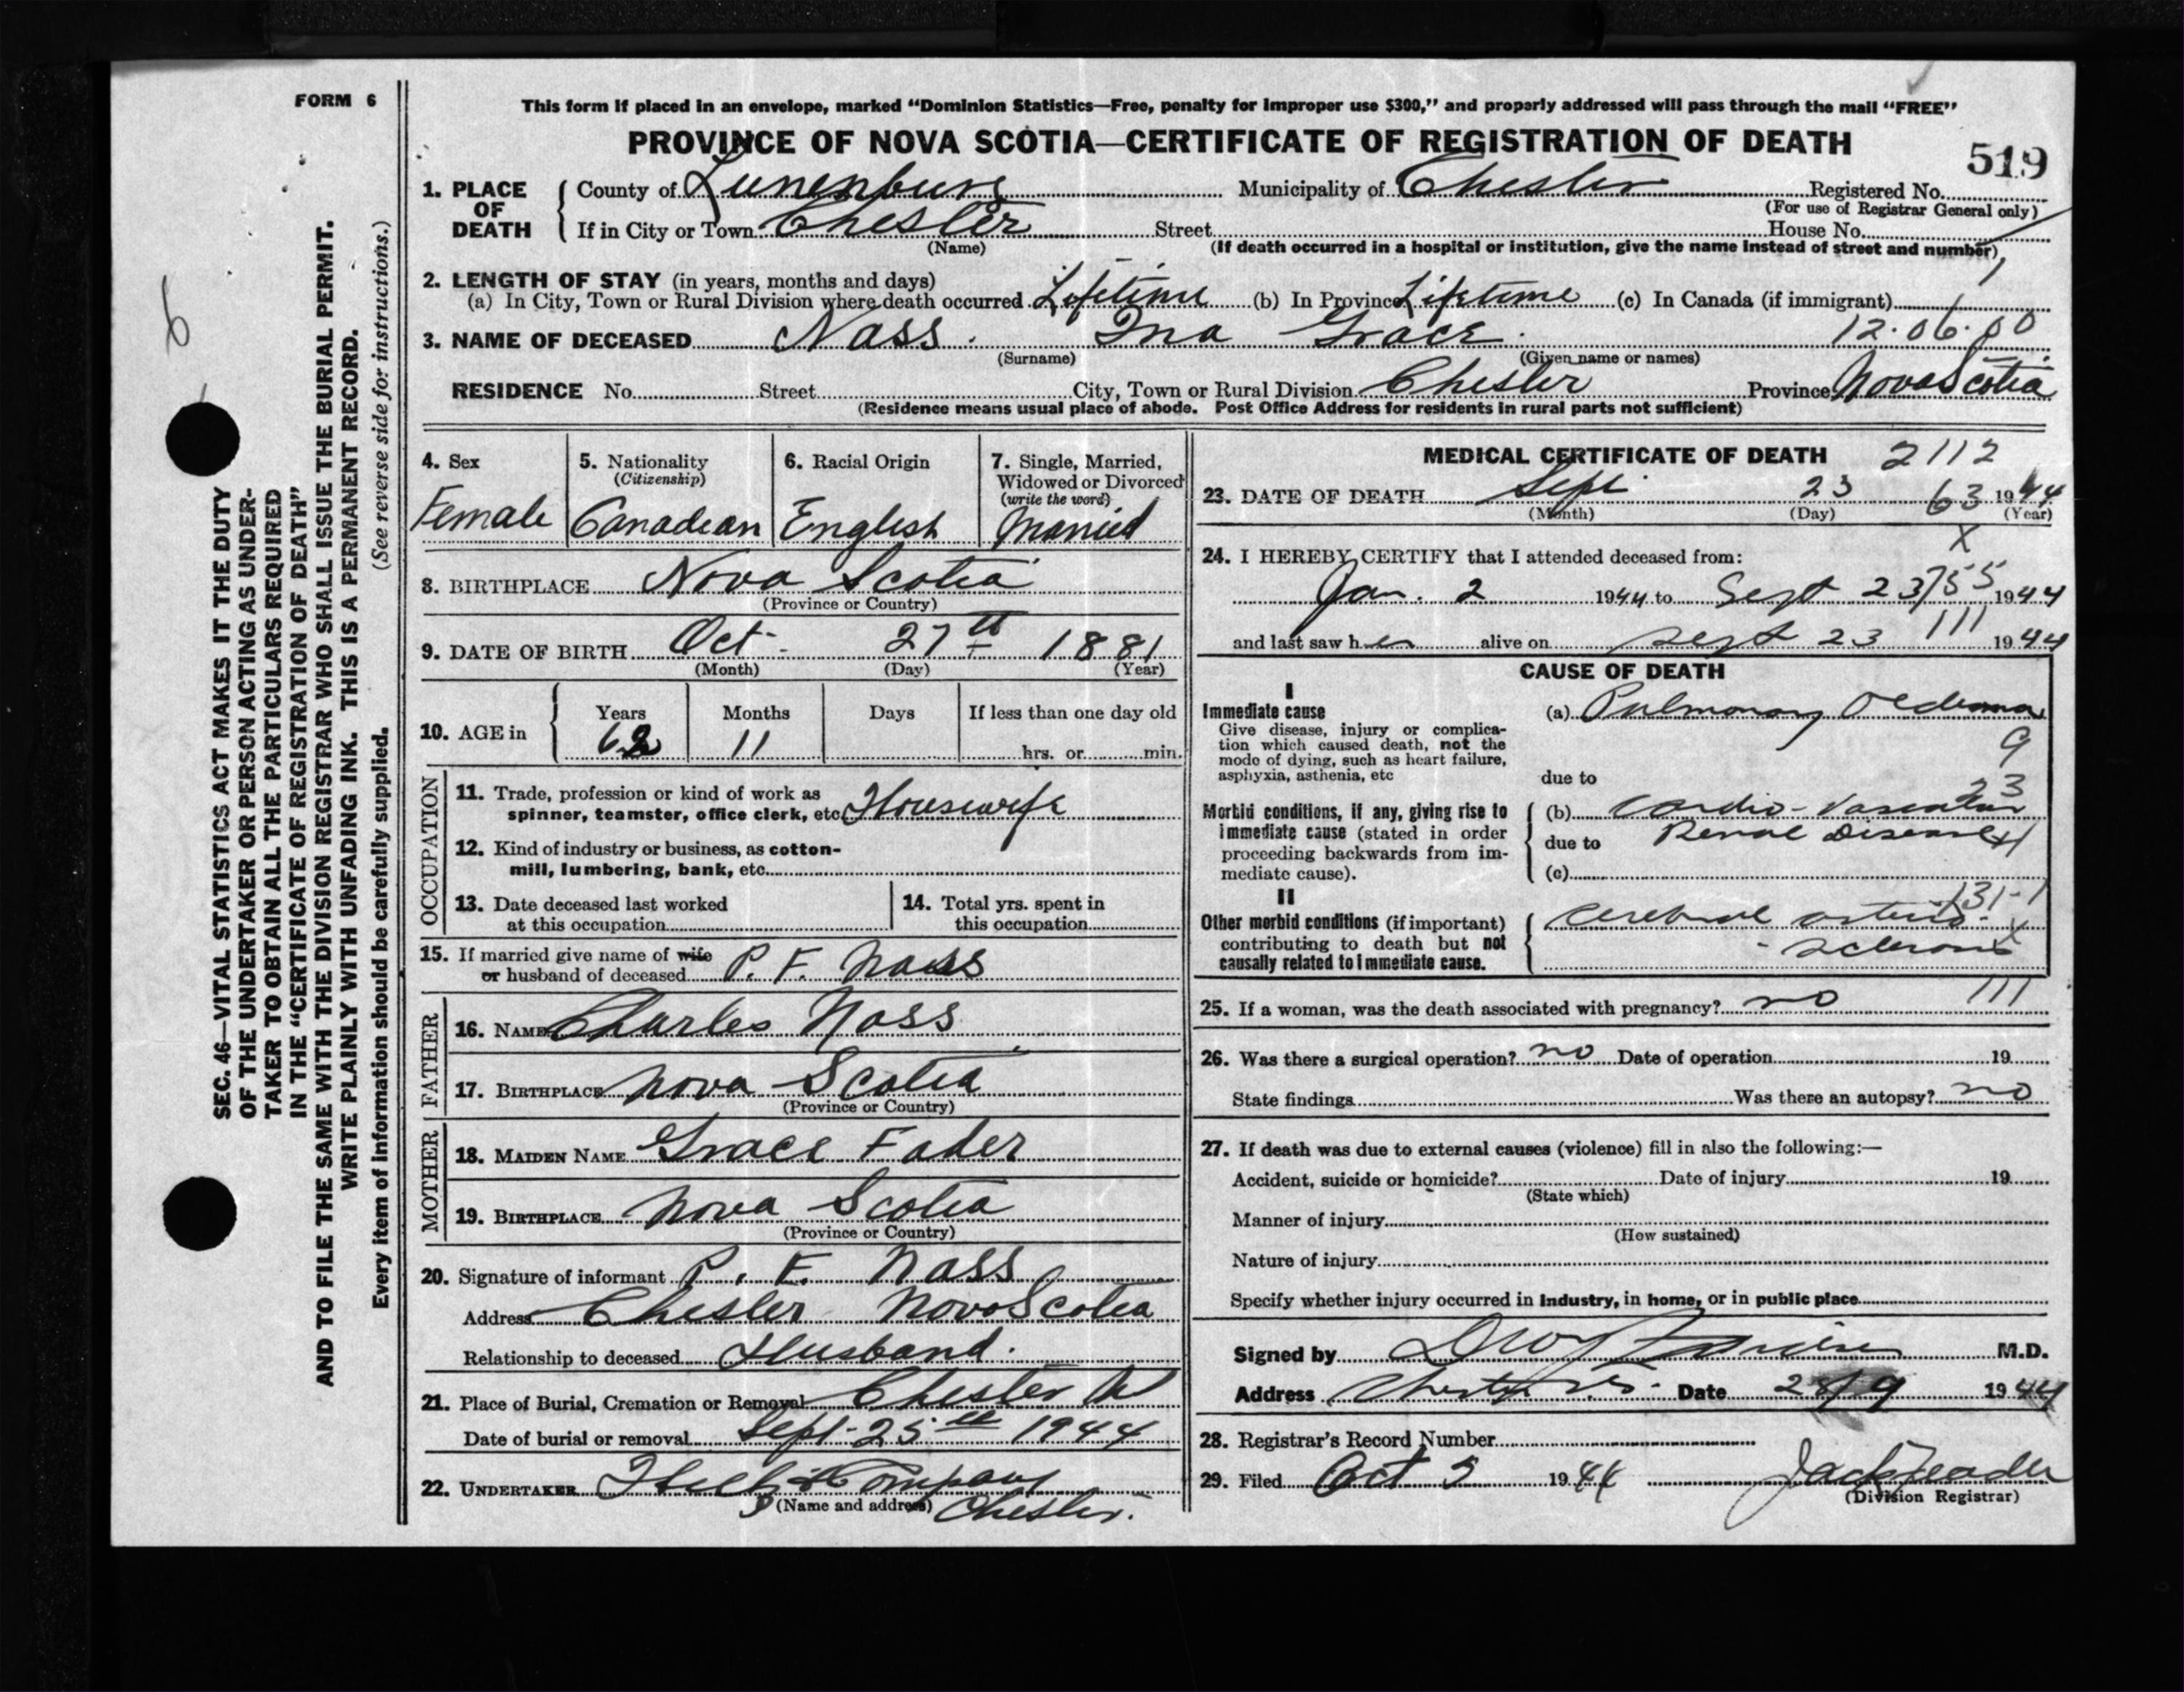 FORM 6
This form if placed in an envelope, marked “Dominion Statistics—Free, penalty for improper use $300,” and properly addressed will pass through the mail “FREE”
PROVINCE OF NOVA SCOTIA—CERTIFICATE OF REGISTRATION OF DEATH
519
1. PLACE OF DEATH County of Lunenburg Municipality of Chester Registered No.
(For use of Registrar General only)
If in City or Town Chester Street House No.
(Name) (If death occurred in a hospital or institution, give the name instead of street and number)
2. LENGTH OF STAY (in years, months and days)
(a) In City, Town or Rural Division where death occurred Lifetime (b) In Province Lifetime (c) In Canada (if immigrant)
3. NAME OF DECEASED Nass. Ina Grace. 12.06.00
(Surname) (Given name or names)
RESIDENCE No. Street City, Town or Rural Division Chester Province Nova Scotia
(Residence means usual place of abode. Post Office Address for residents in rural parts not sufficient)
4. Sex
Female
5. Nationality
(Citizenship)
Canadian
6. Racial Origin
English
7. Single, Married,
Widowed or Divorced
(write the word)
Married
8. BIRTHPLACE Nova Scotia
(Province or Country)
9. DATE OF BIRTH Oct- 27th 1881
(Month) (Day) (Year)
10. AGE in Years Months Days If less than one day old
62 11 hrs. or min.
OCCUPATION
11. Trade, profession or kind of work as
spinner, teamster, office clerk, etc. Housewife
12. Kind of industry or business, as cotton-
mill, lumbering, bank, etc.
13. Date deceased last worked
at this occupation
14. Total yrs. spent in
this occupation
15. If married give name of wife
or husband of deceased P. F. Nass
FATHER
16. NAME Charles Nass
17. BIRTHPLACE Nova Scotia
(Province or Country)
MOTHER
18. MAIDEN NAME Grace Fader
19. BIRTHPLACE Nova Scotia
(Province or Country)
20. Signature of informant P. F. Nass
Address Chester Nova Scotia
Relationship to deceased Husband.
21. Place of Burial, Cremation or Removal Chester
Date of burial or removal Sept-25th 1944
22. UNDERTAKER Company
(Name and address) Chester.
MEDICAL CERTIFICATE OF DEATH 2112
23. DATE OF DEATH Sept. 23 63 1944
(Month) (Day) (Year)
X
24. I HEREBY CERTIFY that I attended deceased from:
Jan. 2 1944 to Sept 23 755 1944
and last saw her alive on Sept 23 111 1944
CAUSE OF DEATH
I
Immediate cause
Give disease, injury or complica-
tion which caused death, not the
mode of dying, such as heart failure,
asphyxia, asthenia, etc
(a) Pulmonary Oedema
9
due to
23
Morbid conditions, if any, giving rise to
immediate cause (stated in order
proceeding backwards from im-
mediate cause).
(b) Cardio-Vascular
due to Renal Disease
(c)
II
131-1
Other morbid conditions (if important)
contributing to death but not
causally related to immediate cause.
Cerebral arterio-
-sclerosis X
25. If a woman, was the death associated with pregnancy? no 111
26. Was there a surgical operation? no Date of operation 19
State findings Was there an autopsy? no
27. If death was due to external causes (violence) fill in also the following:—
Accident, suicide or homicide? Date of injury 19
(State which)
Manner of injury
(How sustained)
Nature of injury
Specify whether injury occurred in industry, in home, or in public place
Signed by M.D.
Address Chester N.S. Date 1944
28. Registrar's Record Number
29. Filed Oct 5 1944 Jack
(Division Registrar)
SEC. 46—VITAL STATISTICS ACT MAKES IT THE DUTY
OF THE UNDERTAKER OR PERSON ACTING AS UNDER-
TAKER TO OBTAIN ALL THE PARTICULARS REQUIRED
IN THE “CERTIFICATE OF REGISTRATION OF DEATH”
AND TO FILE THE SAME WITH THE DIVISION REGISTRAR WHO SHALL ISSUE THE BURIAL PERMIT.
WRITE PLAINLY WITH UNFADING INK. THIS IS A PERMANENT RECORD.
Every item of information should be carefully supplied. (See reverse side for instructions.)